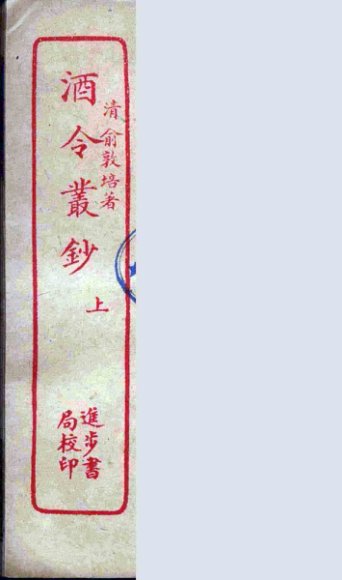 清俞敦培著
酒令叢鈔
上
進步書
局校印